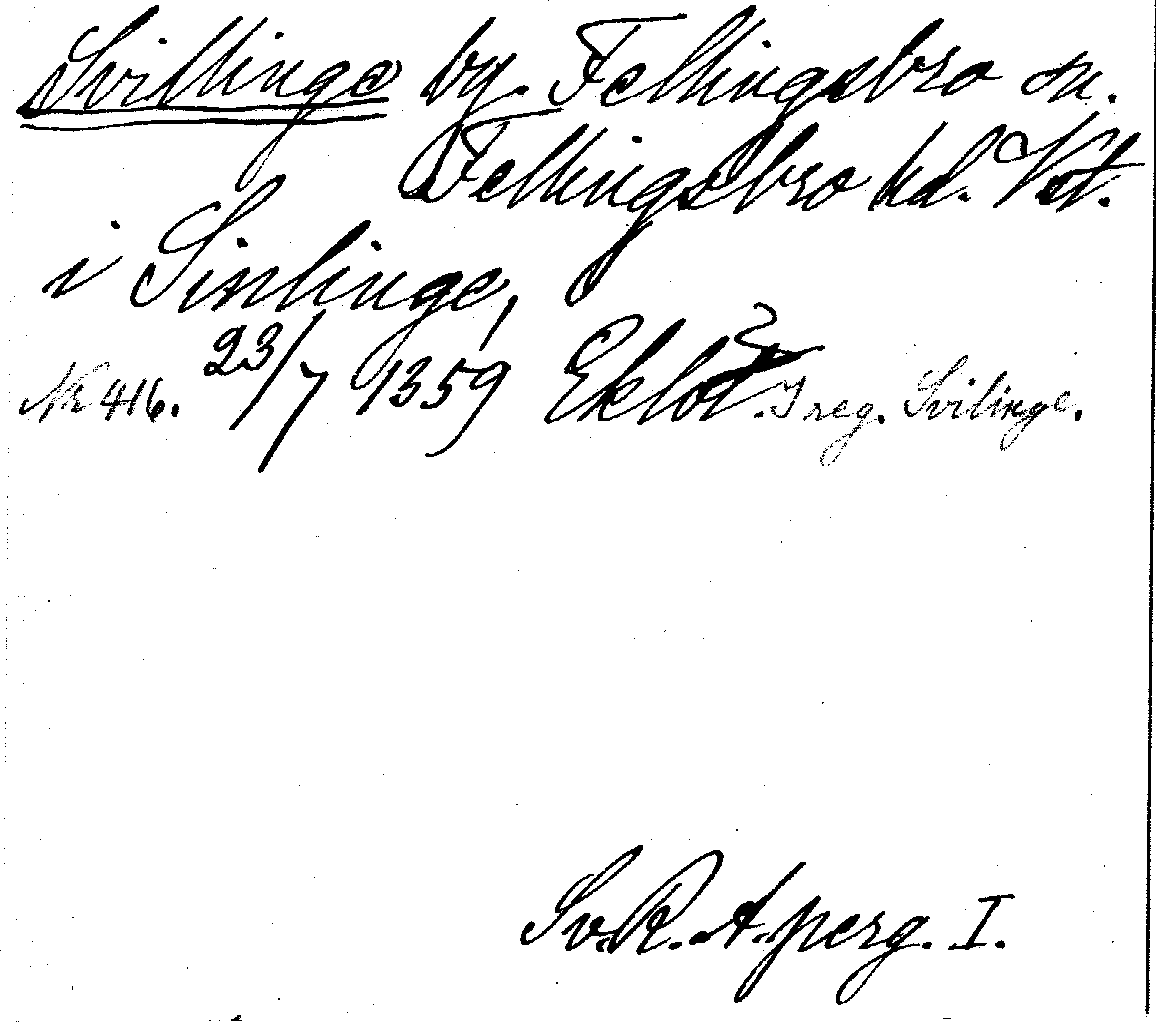 Svillinge by. Fellingsbro sn.
Fellingsbro hd. Vstm.
i Sinlinge,
Nr 416. 23/7 1359 Eklof. I reg. Svilinge.
Sv.R.A. perg. I.